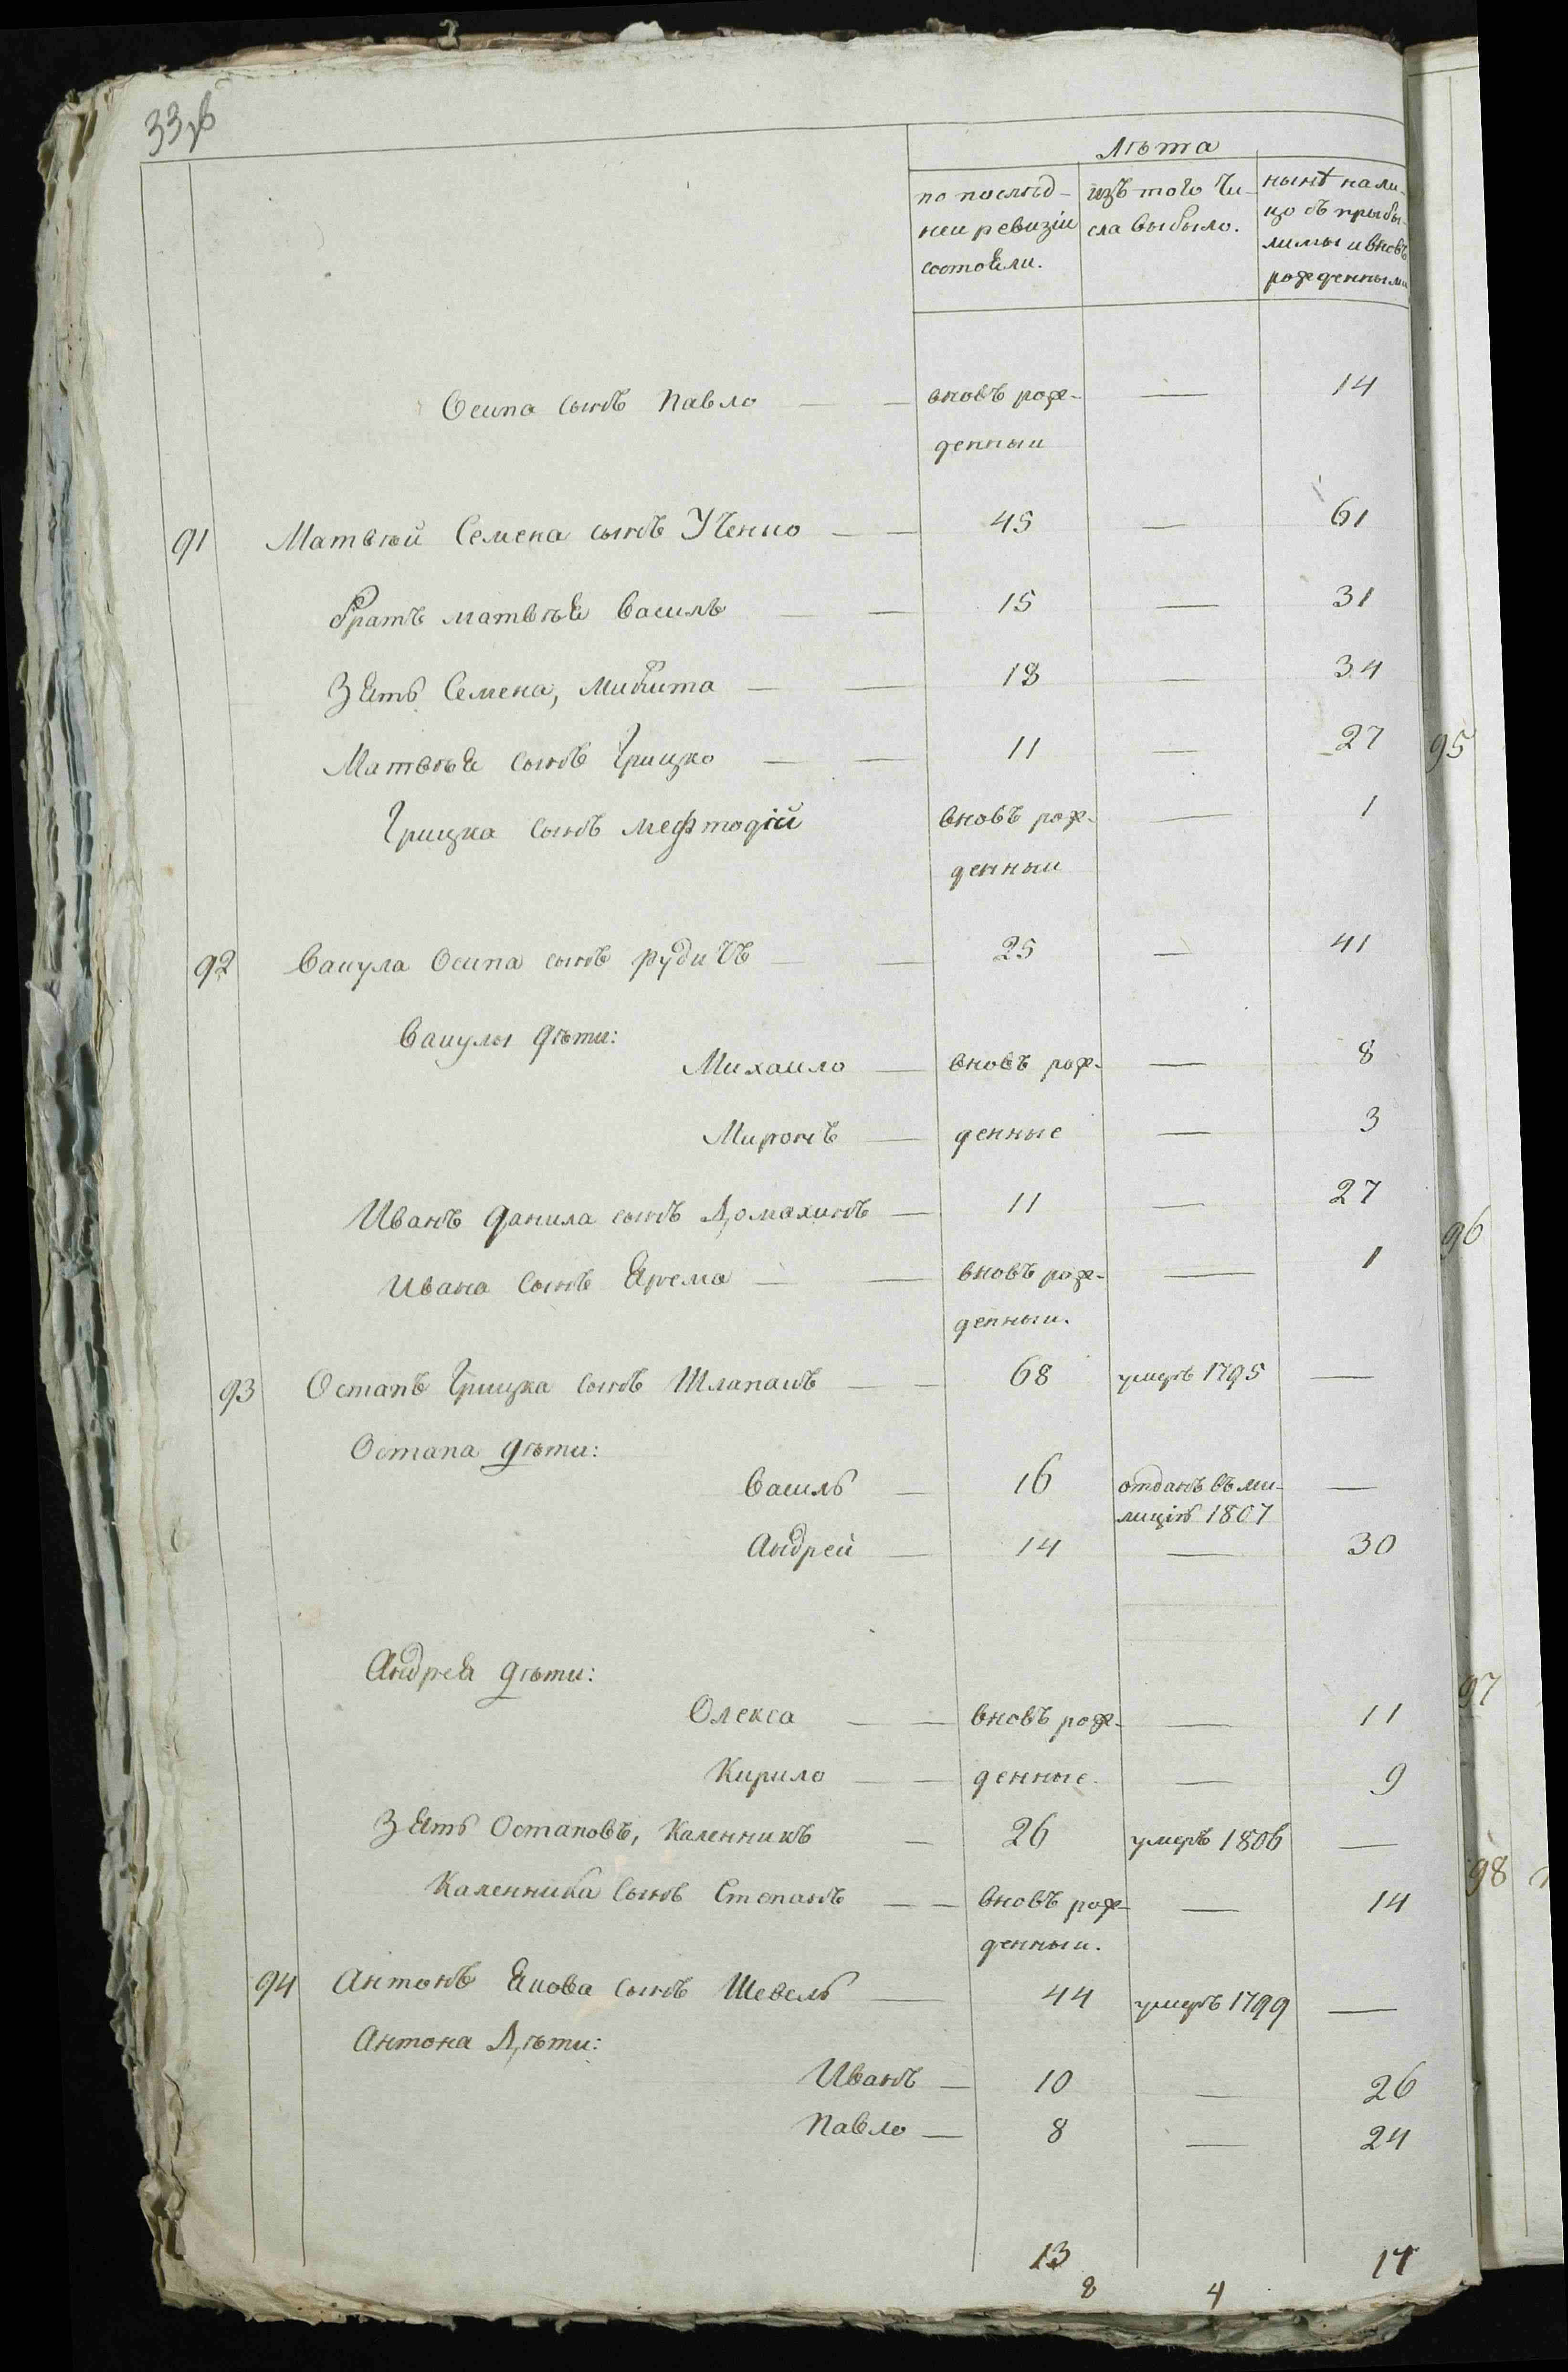 Лѣта
по послѣд- изъ того чи- нынѣ нали-
неи ревизіи сла выбыло. цо съ прибы-
состояли. лимы и вновь
рожденными
Осипа сынъ Павло — — вновъ рож- — 14
денныи
91 Матвѣй Семена сынъ — — 45 — 61
братъ матвѣя Василь — — 15 — 31
Зять Семена, Микита — — 18 — 34
Матвѣя сынъ Грицко — — 11 — 27
Грицка сынъ мефтодій вновъ рож- — 1
денныи
92 Вакула Осипа сынъ рудичъ — — 25 — 41
Вакулы дѣти:
Михаило — вновъ рож- — 8
Миронъ — денные — 3
Иванъ данила сынъ Домахинъ — 11 — 27
Ивана сынъ Ярема — — вновъ рож- — 1
денныи.
93 Остапъ Грицка сынъ Шлапакъ — — 68 умеръ 1795 —
Остапа дѣти:
Василь — 16 отданъ въ ми- —
лицію 1807
Андрей — 14 — 30
Андрея дѣти:
Олекса — — вновъ рож- — 11
Кирило — — денные. — 9
Зять Остаповъ, Каленникъ — 26 умеръ 1806 —
Каленника сынъ Степанъ — — вновъ рож- — 14
денныи.
94 Антонъ Якова сынъ Шевель — 44 умеръ 1799 —
Антона Дѣти:
Иванъ — 10 — 26
Павло — 8 — 24
13 17
8 4
95
96
97
98